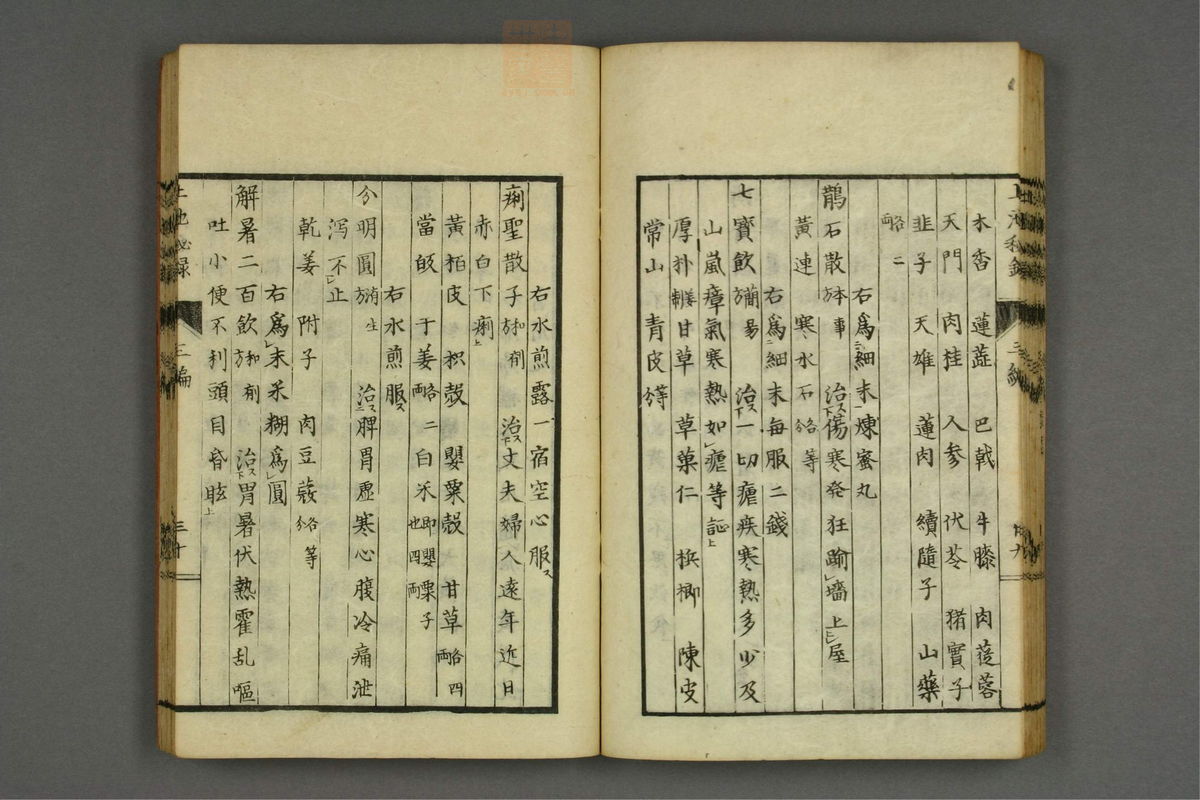 木香 蓮蕋 巴戟 牛膝 肉蓯蓉
天門 肉桂 人参 伏苓 猪實子
韭子 天雄 蓮肉 續隨子 山藥
略二兩
右爲細末煉蜜丸
鵲石散本事方 治傷寒発狂踰墻上屋
黄連 寒水石各等分
右爲細末每服二錢
七寶飲簡易方 治一切瘧疾寒熱多少及
山嵐瘴氣寒熱如瘧等証
厚朴 甘草 草菓仁 梹榔 陳皮
常山 青皮等分
右水煎露一宿空心服
痢聖散子和剤方 治丈夫婦人遠年近日
赤白下痢
黄栢皮 枳殻 嬰粟殻 甘草略四兩
當皈 于姜略二兩 白米即嬰粟子也四兩
右水煎服
分明圓 治脾胃虚寒心腹冷痛泄
泻不止
乾姜 附子 肉豆蔲各等分
右爲末米糊爲圓
解暑二百飲和剤方 治胃暑伏熱霍乱嘔
吐小便不利頭目昏眩
三編
三十